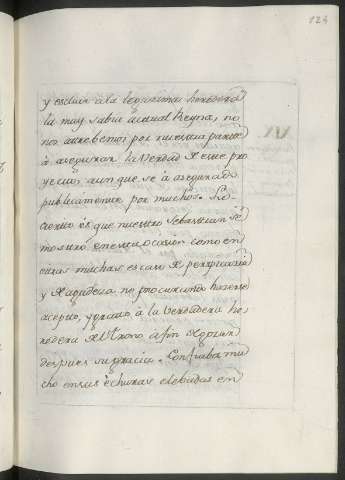 124
y escluir a la legitima heredera
la muy sabia actual Reyna, no
nos atrebemos por nuestra parte
à asegurar la verdad de este pro
yecto, aunque se à asegurado
publicamente por muchos. Lo
cierto es que nuestro Sebastian se
mostró en esta ocasion como en
otras muchas escaso de perspicacia
y de agudeza no procurando hacerse
acepto, y grato à la verdadera he
redera del trono a fin de
despues su gracia. Confiaba mu
cho en sus echuras elebadas en